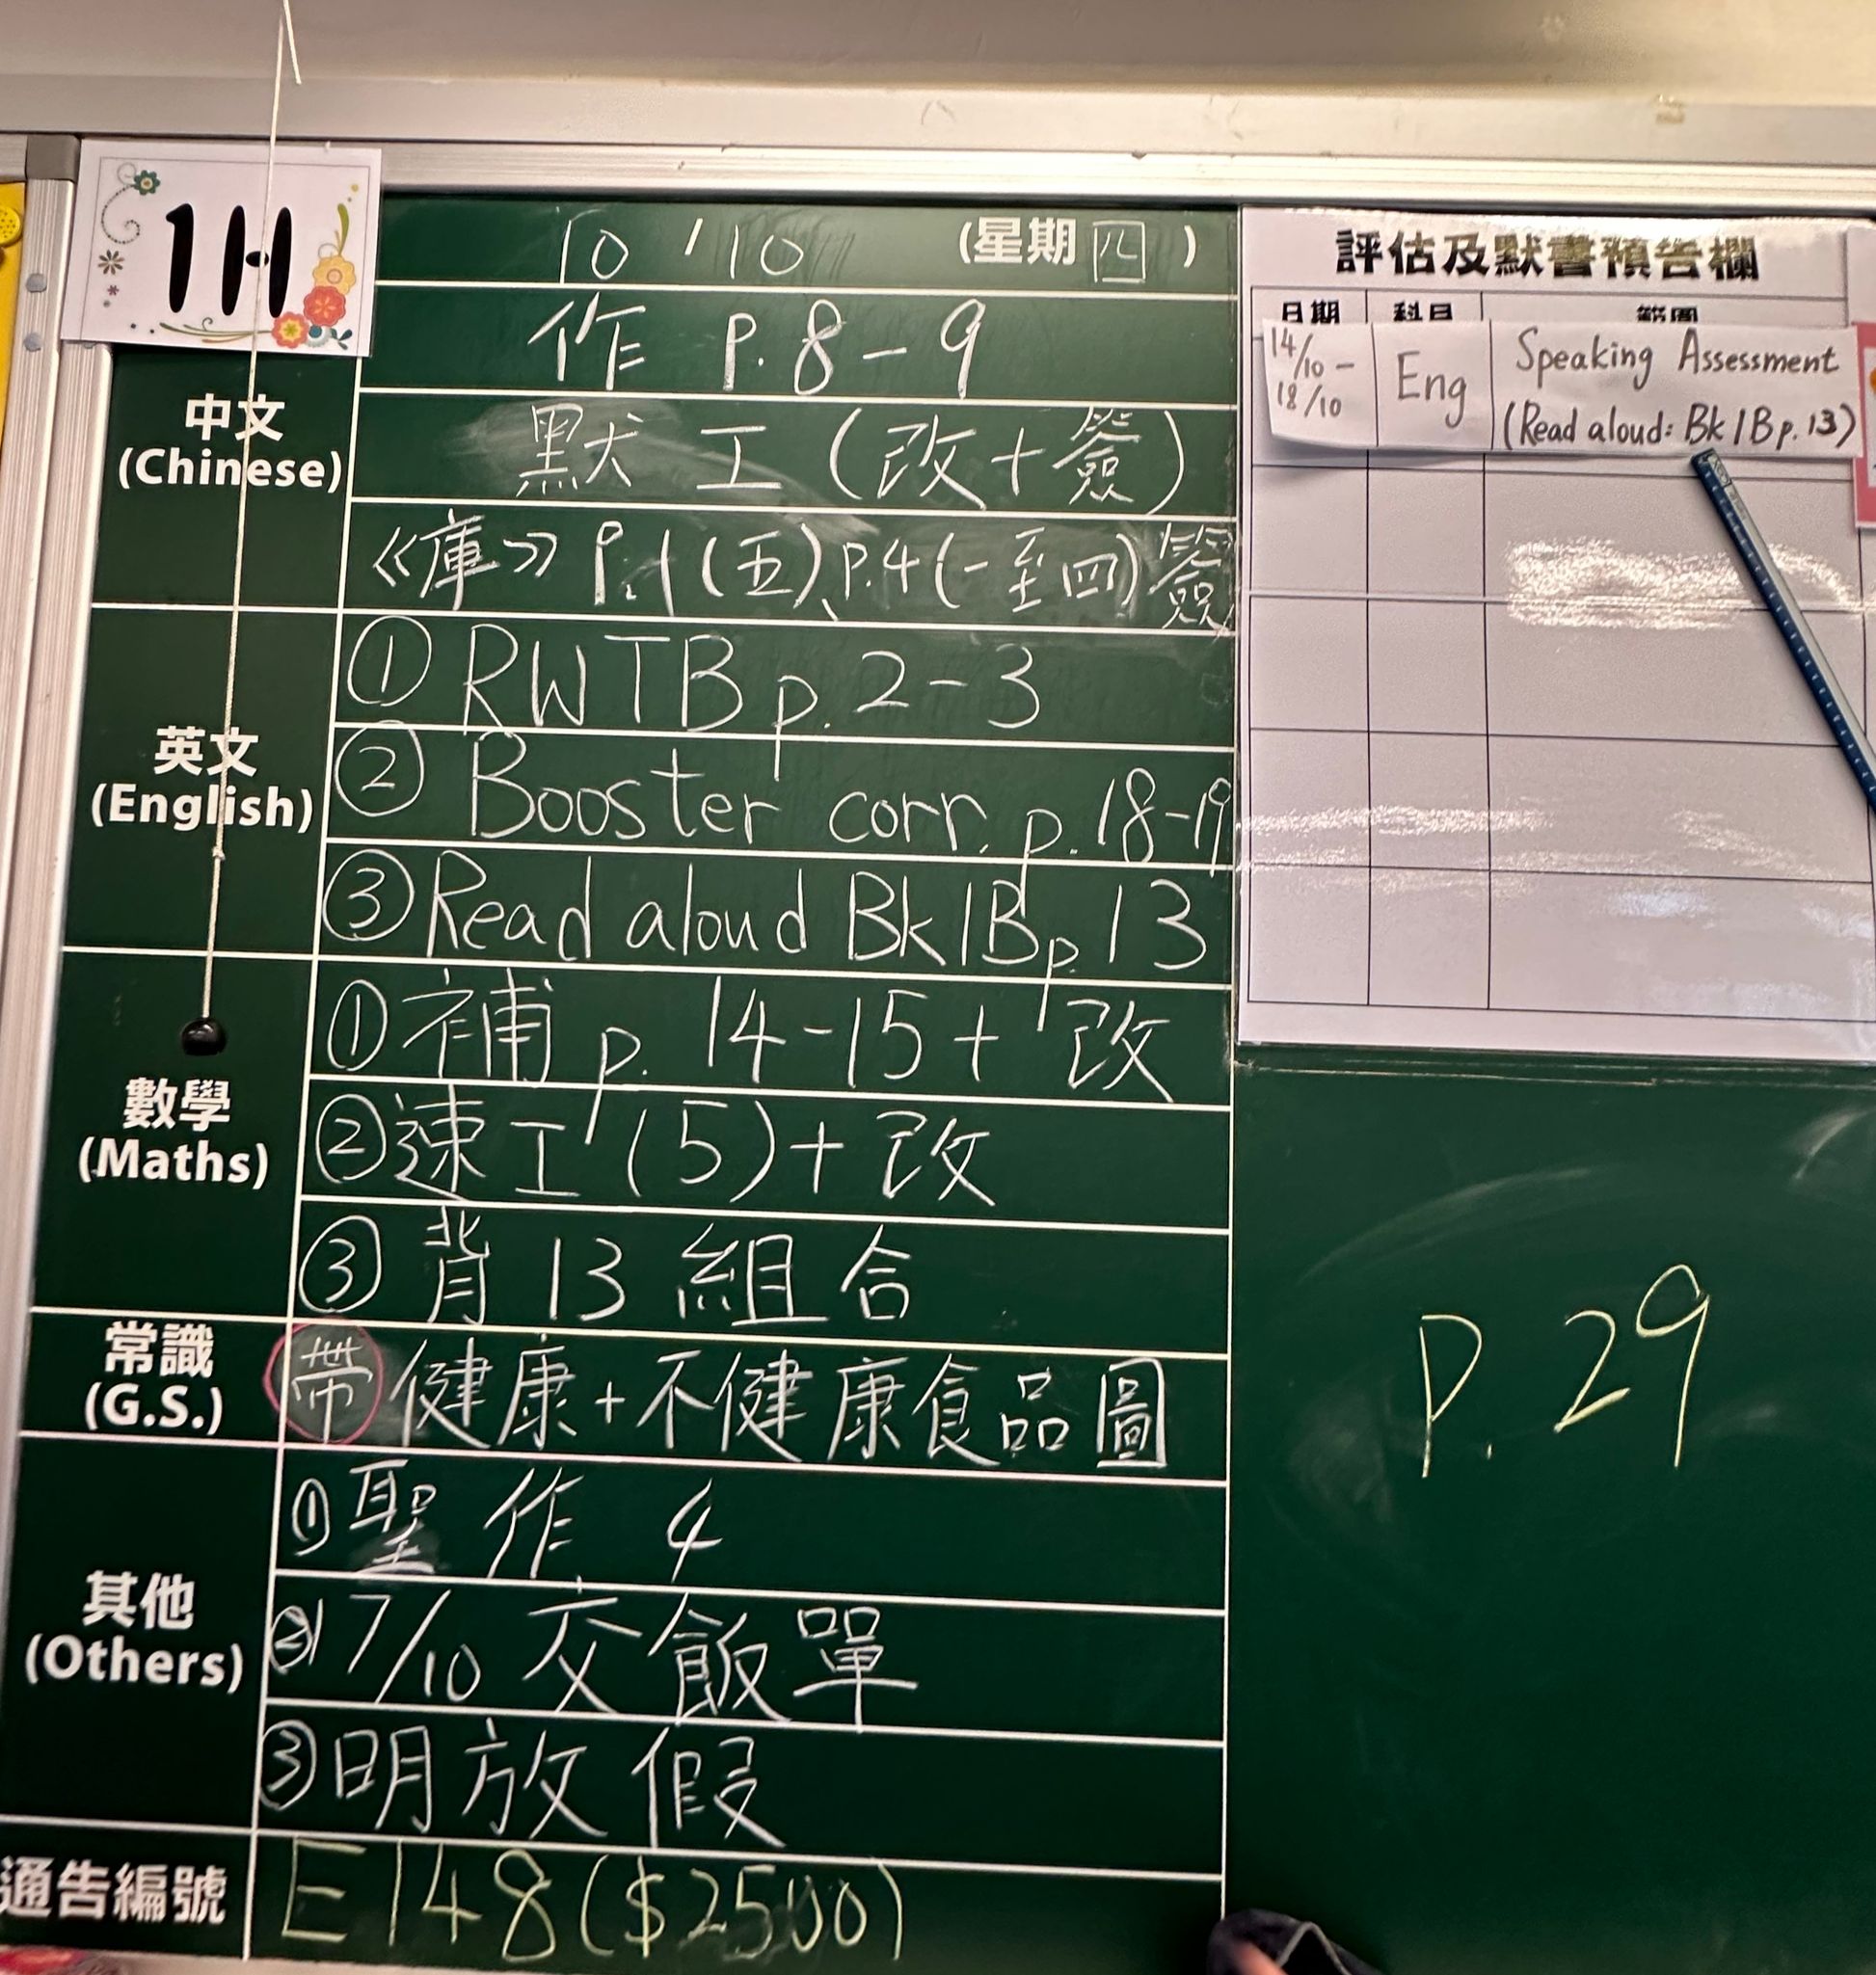 1H
10 / 10 (星期四)
中文
(Chinese)
作 P. 8 - 9
默工 (改+簽)
《庫》 P.1 (五)、P.4 (一至四) 簽
英文
(English)
① RWTB p. 2 - 3
② Booster corr. p. 18-19
③ Read aloud Bk1B p. 13
數學
(Maths)
① 補 p. 14-15 + 改
② 速工 (5) + 改
③ 背 13 組合
常識
(G.S.)
帶 健康 + 不健康食品圖
其他
(Others)
① 聖作 4
② 17/10 交飯單
③ 明放假
通告編號
E148 ($2500)
評估及默書預告欄
日期 科目 範圍
14/10 - 18/10 Eng Speaking Assessment
(Read aloud: Bk 1B p. 13)
P. 29